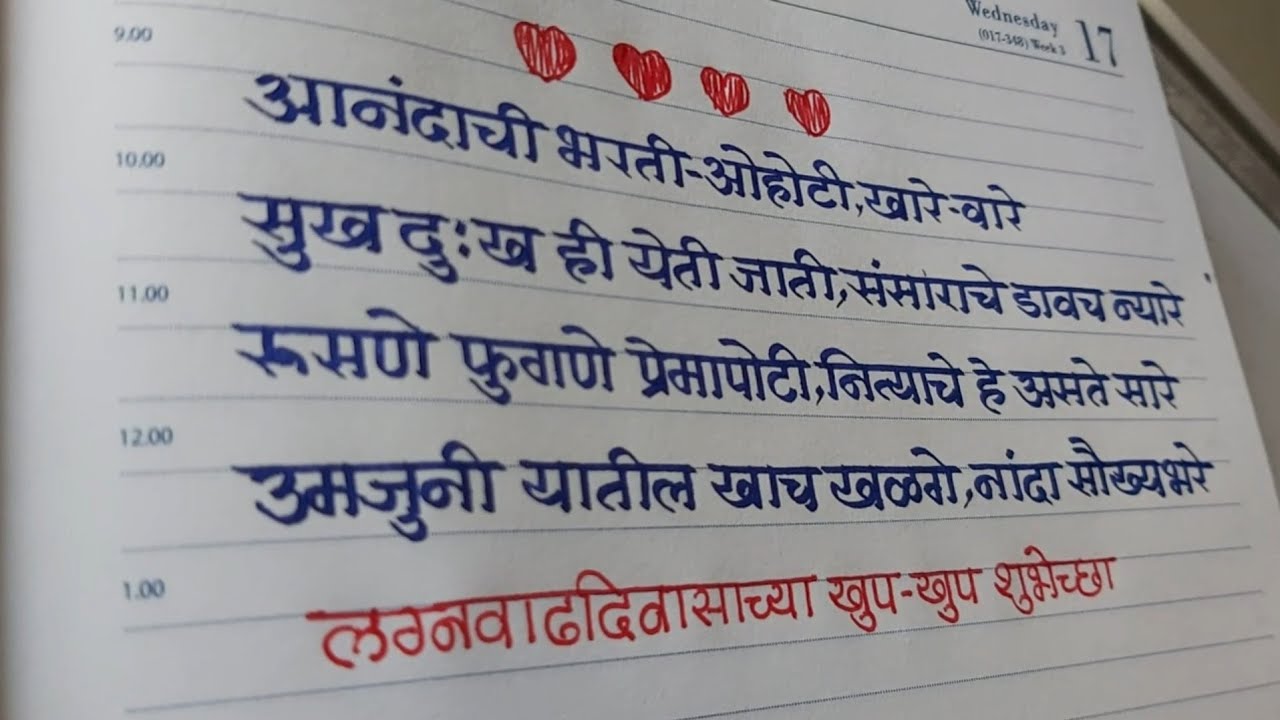 Wednesday 17
(017-348) Week 3
9.00
आनंदाची भरती-ओहोटी,खारे-वारे
10.00
सुख दुःख ही येती जाती,संसाराचे डावच न्यारे
11.00
रूसणे फुगणे प्रेमापोटी,नित्याचे हे असते सारे
12.00
उमजुनी यातील खाच खळगे,नांदा सौख्यभरे
1.00
लग्नवाढदिवासाच्या खुप-खुप शुभेच्छा